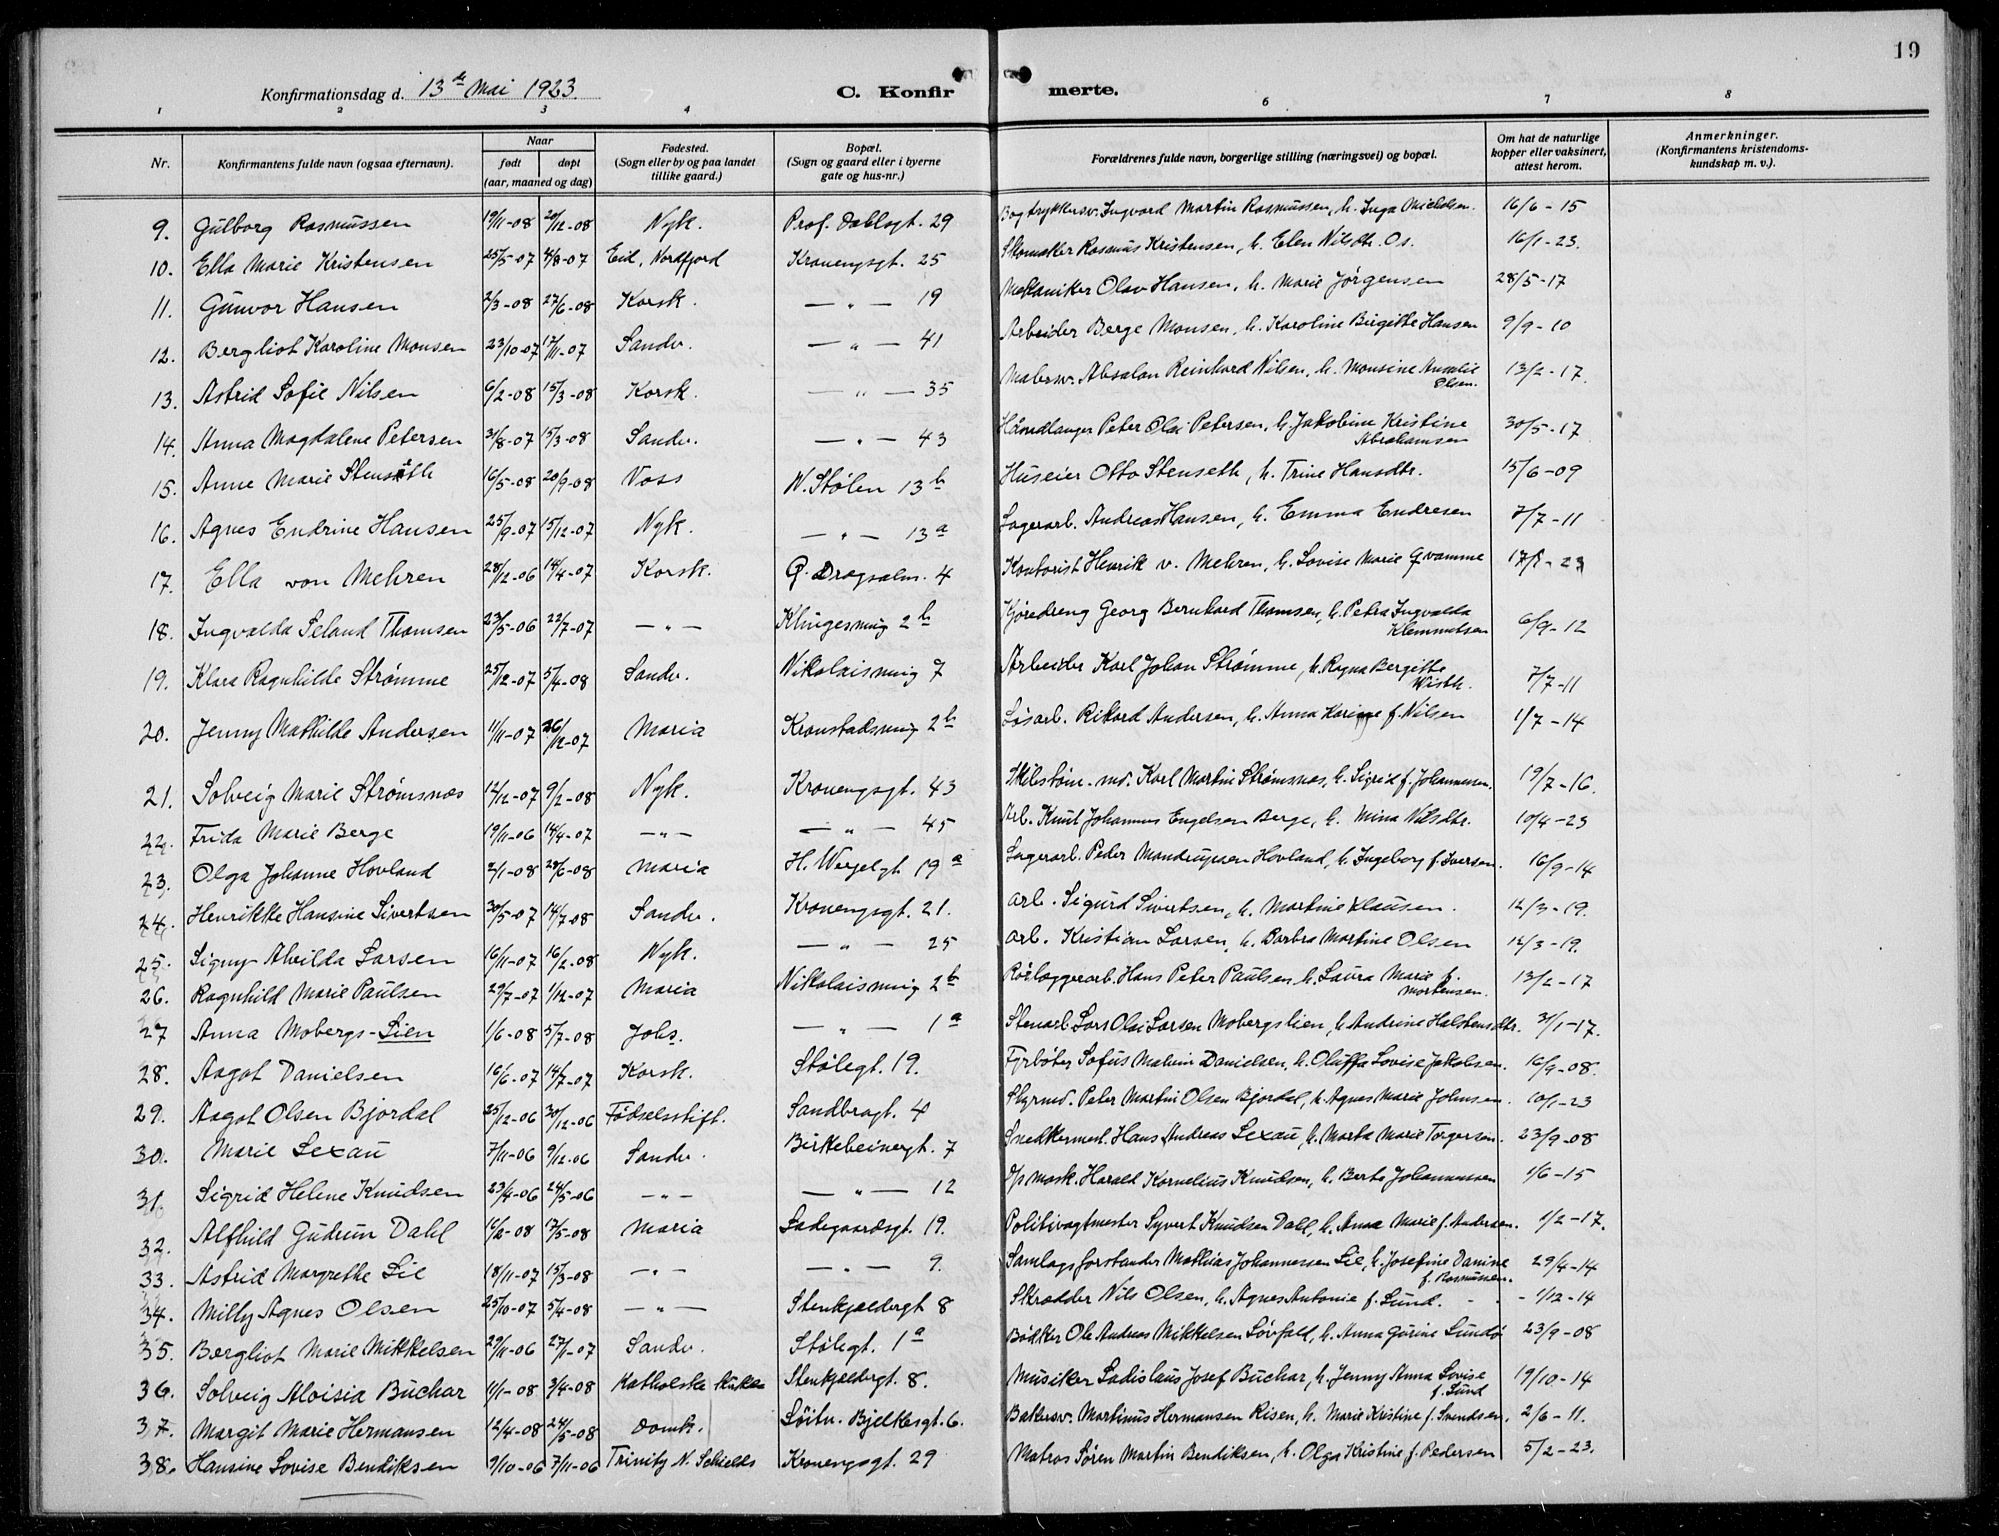 19
Konfirmationsdag d. 13de Mai 1923.
C. Konfir merte.
1 2 3 4 6 7 8
Nr. Konfirmantens fulde navn (ogsaa efternavn). Naar født døpt (aar, maaned og dag) Fødested. (Sogn eller by og paa landet tillike gaard.) Bopæl. (Sogn og gaard eller i byerne gate og hus-nr.) Forældrenes fulde navn, borgerlige stilling (næringsvei) og bopæl. Om hat de naturlige kopper eller vaksinert, attest herom. Anmerkninger. (Konfirmantens kristendomskundskap m. v.).
9. Gulborg Rasmussen 19/11-08 20/12-08 Nyk. Prof. Dahlsgt. 29 Bogtrykkersv. Ingvard Martin Rasmussen, h. Inga Michelsen. 16/6-15
10. Ella Marie Kristensen 25/5-07 4/8-07 Eid, Nordfjord Kronengsgt. 25 Skomaker Rasmus Kristensen, h. Elen Nilsdtr. Os. 16/1-23.
11. Gunvor Hansen 2/3-08 27/6-08 Korsk. — " — 19 Mekaniker Olav Hansen, h. Marie Jørgensen 28/5-17
12. Bergliot Karoline Monsen 23/10-07 17/11-07 Sandv. — " — 41 Arbeider Berge Monsen, h. Karoline Birgitte Hansen 9/9-10
13. Astrid Sofie Nilsen 6/2-08 15/3-08 Korsk. — " — 35 Malersv. Absalon Reinhard Nilsen, h. Monsine Amalie Olsen. 13/2-17.
14. Anna Magdalene Petersen 31/8-07 15/3-08 Sandv. — " — 43 Haandlanger Peter Olai Petersen, h. Jakobine Kristine Abrahamsen 30/5-17
15. Anne Marie Stenseth 16/5-08 20/9-08 Voss W. Stølen 13b Huseier Otto Stenseth, h. Trine Hansdtr. 15/6-09
16. Agnes Endrine Hansen 25/9-07 15/12-07 Nyk. — " — 13a Lagerarb. Andreas Hansen, h. Emma Endresen 7/7-11
17. Ella von Mehren 28/12-06 14/4-07 Korsk. Q. Dragsalm. 4 Kontorist Henrik v. Mehren, h. Lovise Marie Qvamme 17/1-23
18. Ingvalda Seland Thomsen 23/5-06 22/7-07 — " — Klingesmug 2b Kjøredreng Georg Bernhard Thomsen, h. Petra Ingvalda Klemmetsen 6/9-12
19. Klara Ragnhilde Strømme 25/12-07 5/4-08 Sandv. Nikolaismug 7 Arbeider Karl Johan Strømme, h. Ragna Bergitte Wisth. 7/7-11
20. Jenny Mathilde Andersen 11/11-07 26/12-07 Maria Kronstadsmug 2b Løsarb. Rikard Andersen, h. Anna Karine f. Nilsen 1/7-14
21. Solveig Marie Strømsnes 12/12-07 9/2-08 Nyk. Kronengsgt. 43 Skibstøm.-md. Karl Martin Strømsnes, h. Sigrid f. Johannessen. 19/7-16.
22. Frida Marie Berge 19/11-06 14/4-07 — " — — " — 45 Arb. Knut Johannes Engelsen Berge, h. Mina Nilsdtr. 10/4-23
23. Olga Johanne Hovland 2/1-08 28/6-08 Maria H. Wergelgt. 19a Lagerarb. Peder Mandrupsen Hovland, h. Ingeborg f. Iversen. 16/9-14
24. Henrikke Hansine Sivertsen 30/5-07 14/7-08 Sandv. Kronengsgt. 21. Arb. Sigurd Sivertsen, h. Martine Klausen. 12/3-19.
25. Signy Alvilda Larsen 16/11-07 16/2-08 Nyk. — " — 25 Arb. Kristian Larsen, h. Barbra Martine Olsen 12/3-19.
26. Ragnhild Marie Paulsen 29/7-07 1/12-07 Maria Nikolaismug 2b Rørlæggerarb. Hans Peter Paulsen, h. Laura Marie f. Mortensen. 13/2-17
27 Anna Mobergs-Lien 1/6-08 5/7-08 Johs. — " — 1a Stenarb. Lars Olai Larsen Mobergslien, h. Andrine Halstensdtr. 31/1-17.
28. Aagot Danielsen 16/6-07 14/7-07 Korsk. Stølegt. 19. Fyrbøter Sofus Malvin Danielsen, h. Oluffa Lovise Jakobsen. 16/9-08.
29. Aagot Olsen Bjordal 25/12-06 30/12-06 Fødselsstift. Sandbrogt. 4 Styrmd. Peter Martin Olsen Bjordal, h. Agnes Marie Johnsen. 10/1-23
30. Marie Lexau 7/11-06 9/12-06 Sandv. Birkebeinergt. 7 Snedkermest. Hans Andreas Lexau, h. Marta Marie Torgersen. 23/9-08
31. Sigrid Helene Knudsen 23/4-06 24/5-06 — " — — " — 12 Harald Kornelius Knudsen, h. Berte Johannessen 1/6-15
32. Alfhild Gudrun Dahl 16/2-08 17/5-08 Maria Ladegaardsgt. 19. Politivagtmester Syvert Knudsen Dahl, h. Anna Marie f. Andersen. 1/2-17.
33. Astrid Margrethe Lie 18/11-07 15/3-08 — " — — " — 9. Samlagsforstander Mathias Johannessen Lie, h. Josefine Danine f. Rasmussen. 29/4-14
34. Milly Agnes Olsen 25/10-07 5/4-08 — " — Stenkjeldergt 8 Skrædder Nils Olsen, h. Agnes Antonie f. Lund. - - - 1/12-14
35. Bergliot Marie Mikkelsen 29/11-06 27/1-07 Sandv. Stølegt. 1a Bødker Ole Andreas Mikkelsen Sørfold, h. Anna Gurine Lundø 23/9-08
36. Solveig Aloisia Buchar 11/1-08 3/4-08 Katholske kirke Stenkjeldergt. 8. Musiker Ladislaus Josef Buchar, h. Jenny Anna Lovise f. Lund 19/10-14
37. Margit Marie Hermansen 12/4-08 24/5-08 Domk. Søitv. Bjelkesgt. 6. Bakersv. Martinus Hermansen Risen, h. Marie Kristine f. Svendsen. 2/6-11.
38. Hansine Lovise Bendiksen 9/10-06 7/11-06 Trinity N. Schields Kronengsgt. 29 Matros Søren Martin Bendiksen, h. Olga Kristine f. Pedersen 5/2-23.